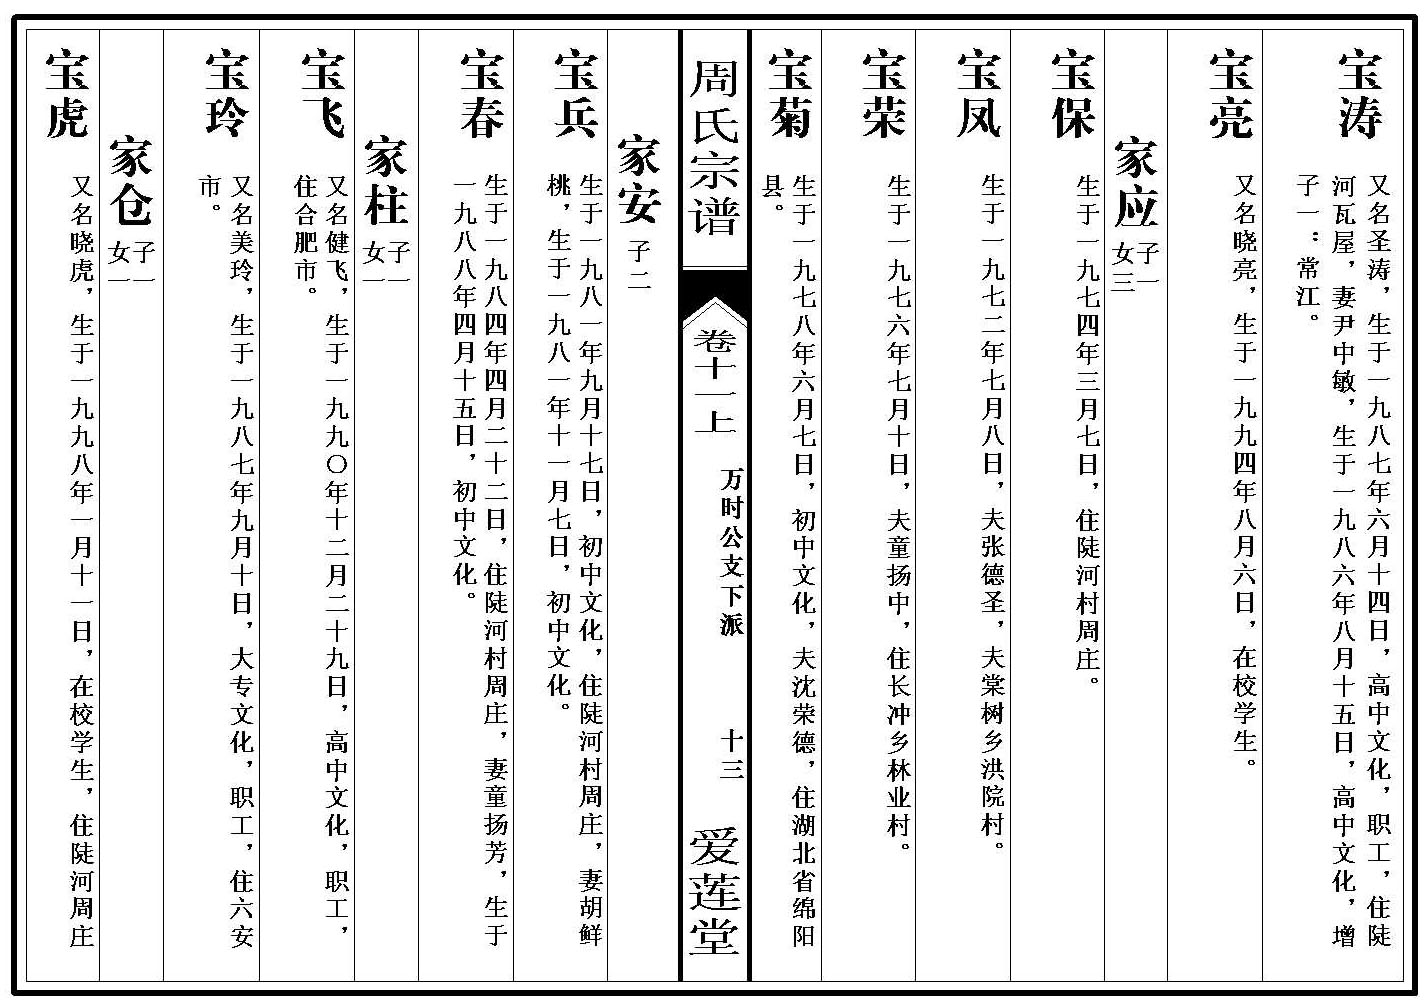 宝涛
又名圣涛，生于一九八七年六月十四日，高中文化，职工，住陡
河瓦屋，妻尹中敏，生于一九八六年八月十五日，高中文化，增
子一：常江。
宝亮
又名晓亮，生于一九九四年八月六日，在校学生。
家应
子一
女三
宝保
生于一九七四年三月七日，住陡河村周庄。
宝凤
生于一九七二年七月八日，夫张德圣，夫棠树乡洪院村。
宝荣
生于一九七六年七月十日，夫童扬中，住长冲乡林业村。
宝菊
生于一九七八年六月七日，初中文化，夫沈荣德，住湖北省绵阳
县。
周氏宗谱
卷十一上
万时公支下派
十三
爱莲堂
家安
子二
宝兵
生于一九八一年九月十七日，初中文化，住陡河村周庄，妻胡鲜
桃，生于一九八一年十一月七日，初中文化。
宝春
生于一九八四年四月二十二日，住陡河村周庄，妻童扬芳，生于
一九八八年四月十五日，初中文化。
家柱
子一
女一
宝飞
又名健飞，生于一九九〇年十二月二十九日，高中文化，职工，
住合肥市。
宝玲
又名美玲，生于一九八七年九月十日，大专文化，职工，住六安
市。
家仓
子一
女一
宝虎
又名晓虎，生于一九九八年一月十一日，在校学生，住陡河周庄